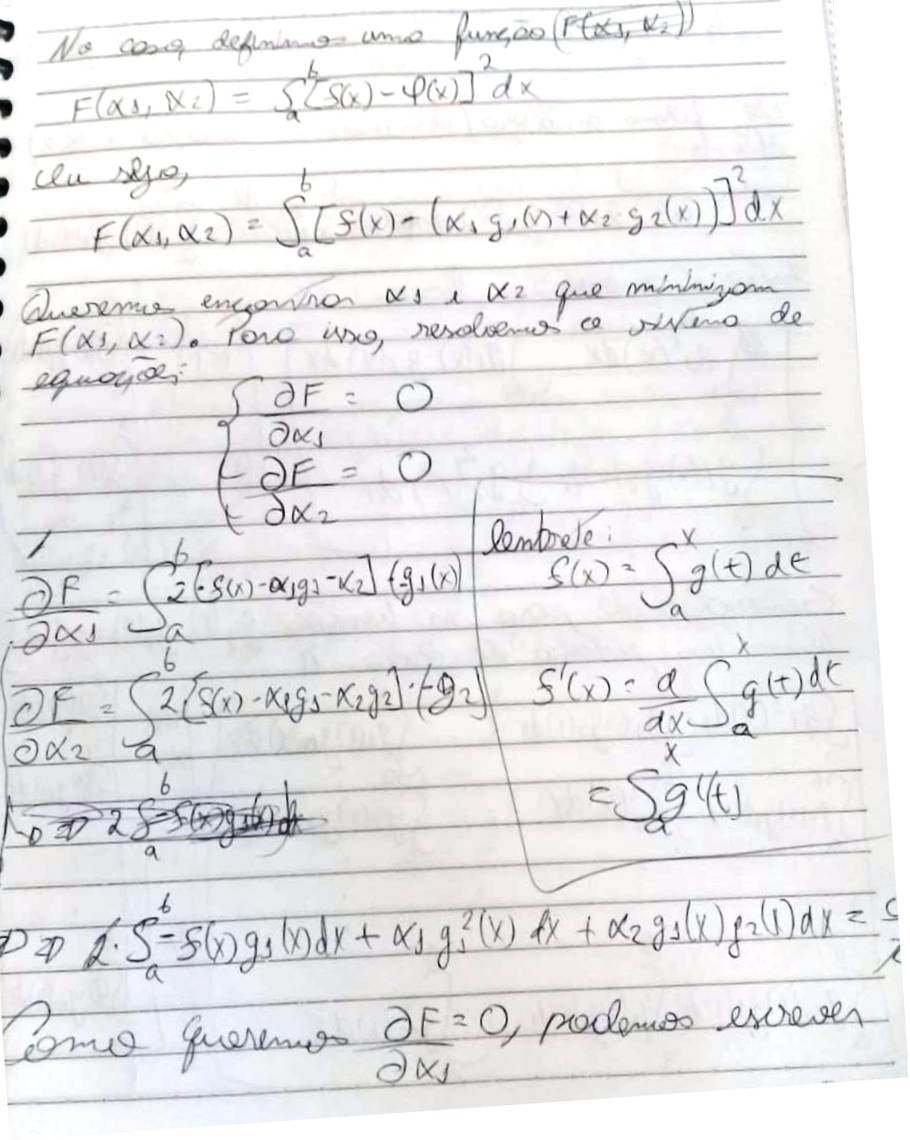 No caso, definimos uma função (F(α1, α2))
F(α1, α2) = ∫_a^b [f(x) - φ(x)]² dx
Ou seja,
F(α1, α2) = ∫_a^b [f(x) - (α1 g1(x) + α2 g2(x))]² dx
Queremos encontrar α1 e α2 que minimizam
F(α1, α2). Para isso, resolvemos o sistema de
equações:
{ ∂F/∂α1 = 0
∂F/∂α2 = 0
∂F/∂α1 = ∫_a^b 2[f(x) - α1g1 - α2] (-g1(x)
∂F/∂α2 = ∫_a^b 2[f(x) - α1g1 - α2g2] · (-g2)
⇒ 2 ∫_a^b - f(x)g1(x) dx
lembrete:
f(x) = ∫_a^x g(t) dt
f'(x) = d/dx ∫_a^x g(t) dt
= ∫_a^x g'(t)
⇒ 2 · ∫_a^b - f(x) g1(x) dx + α1 g1²(x) dx + α2 g1(x) g2(x) dx =
Como queremos ∂F/∂α1 = 0, podemos escrever